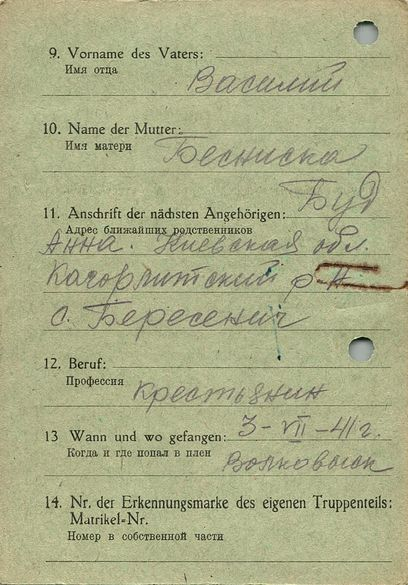 9. Vorname des Vaters:
Имя отца
Василий
10. Name der Mutter:
Имя матери
Буд
11. Anschrift der nächsten Angehörigen:
Адрес ближайших родственников
Анна. Киевская обл.
Кагорлитский р-н
с. Бересенич
12. Beruf:
Профессия
Крестьянин
13 Wann und wo gefangen: 3-VII-41г.
Когда и где попал в плен
Волковыск
14. Nr. der Erkennungsmarke des eigenen Truppenteils:
Matrikel=Nr.
Номер в собственной части